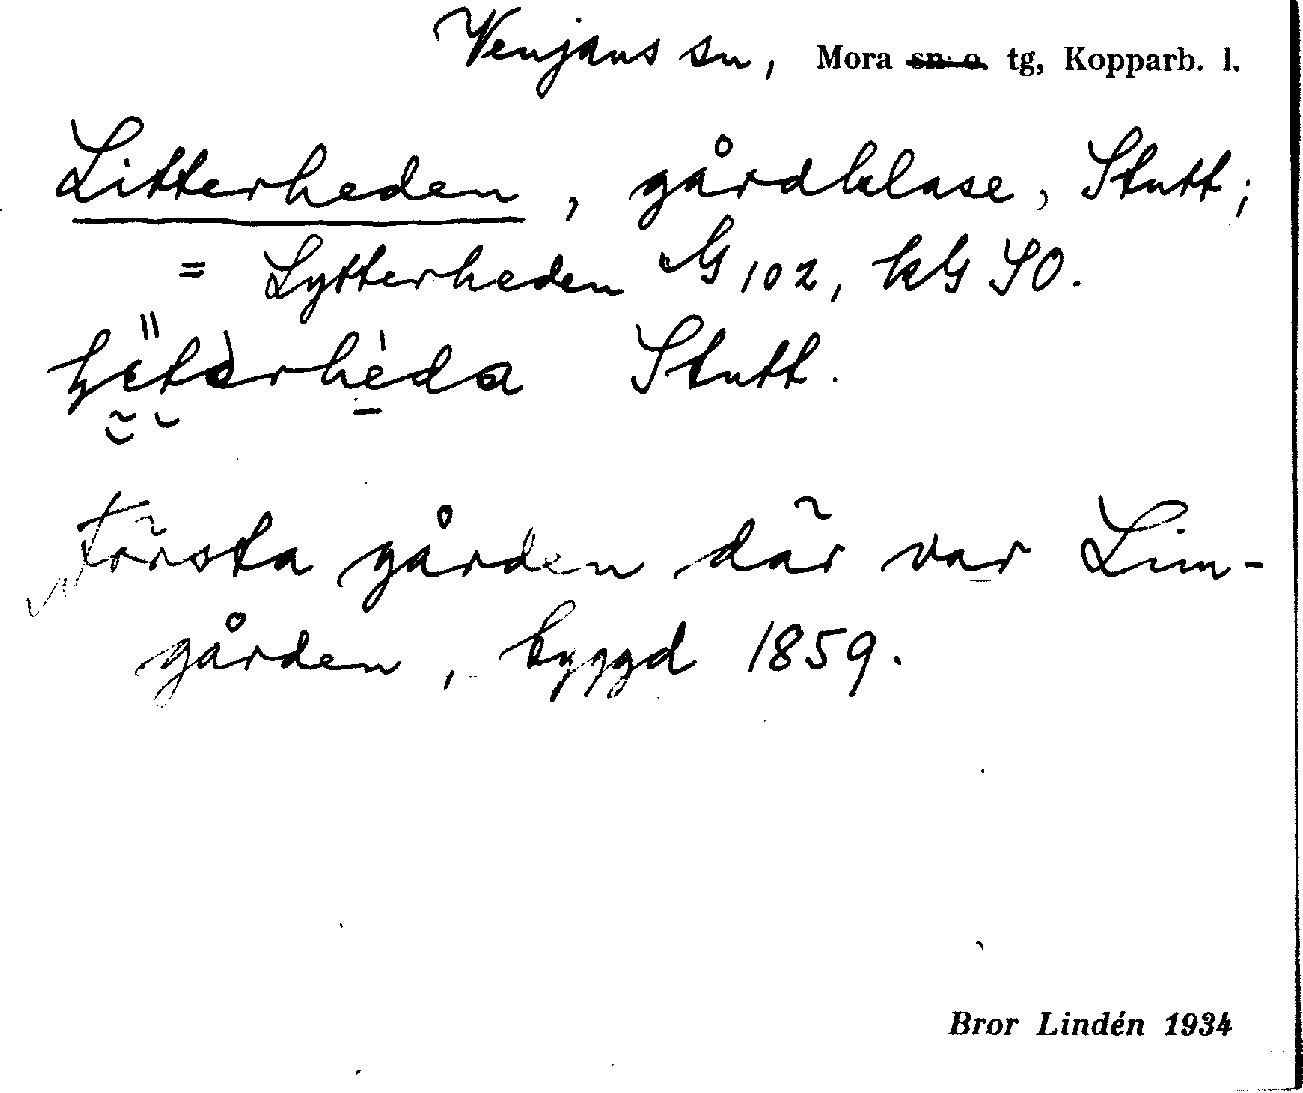 Venjans sn, Mora sn o. tg, Kopparb. l.
Litterheden, gårdklase, Stutt;
= Lytterheden G 102, kG SO.
Stutt.
Första gården där var Lim-
gården, byggd 1859.
Bror Lindén 1934